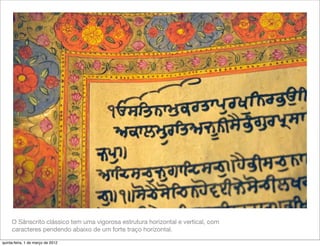 ੴਸਤਿਨਾਮੁਕਰਤਾਪੁਰਖੁਨਿਰਭਉ
ਅਕਾਲਮੂਰਤਿਅਜੂਨੀਸੈਭੰਗੁਰਪ੍ਰਸਾ
ਜਪੁ॥
ਆਦਿਸਚੁਜੁਗਾਦਿਸਚੁ॥ਹੈਭੀਸਚੁ
ਚੁ॥੧॥ਸੋਚੈਸੋਚਿਨਹੋਵਈ
O Sânscrito clássico tem uma vigorosa estrutura horizontal e vertical, com
caracteres pendendo abaixo de um forte traço horizontal.
quinta-feira, 1 de março de 2012